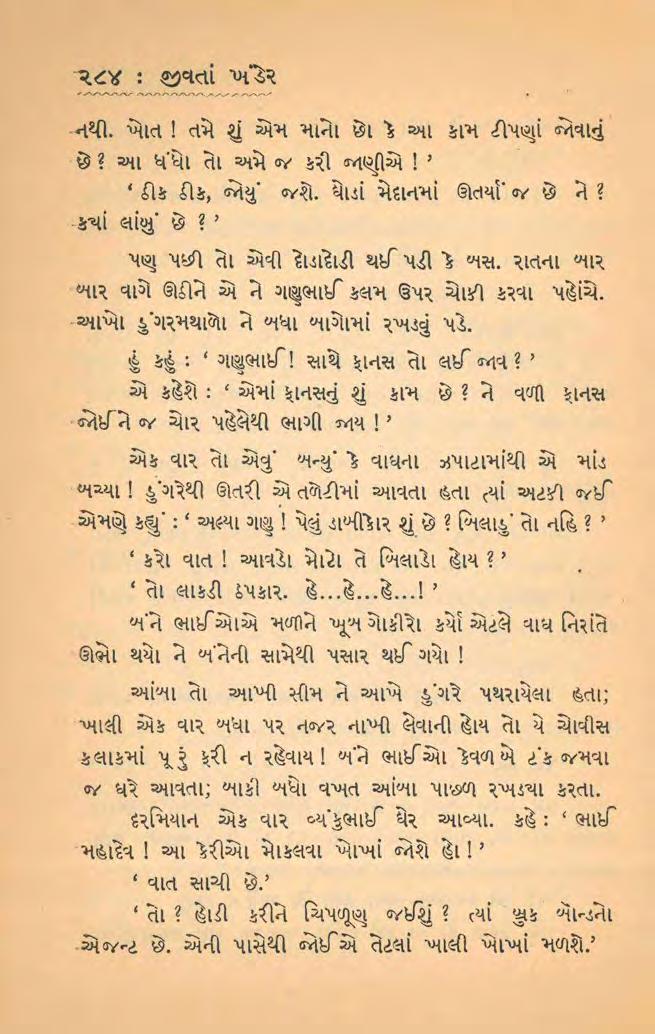 ૨૮૪ : જીવતાં ખંડેર
નથી. ખોત ! તમે શું એમ માનો છો કે આ કામ ટીપણાં જોવાનું
છે? આ ધંધો તો અમે જ કરી જાણીએ ! ’
‘ ઠીક ઠીક, જોયું જશે. ઘોડાં મેદાનમાં ઊતર્યાં જ છે ને ?
કયાં લાંબું છે ? ’
પણ પછી તો એવી દોડાદોડી થઈ પડી કે બસ. રાતના બાર
બાર વાગે ઊઠીને એ ને ગણુભાઈ કલમ ઉપર ચોકી કરવા પહોંચે.
આખો ડુંગરમથાળો ને બધા બાગોમાં રખડવું પડે.
હું કહું : ‘ ગણુભાઈ! સાથે ફાનસ તો લઈ જાવ ? ’
એ કહેશે : ‘ એમાં ફાનસનું શું કામ છે ? ને વળી ફાનસ
જોઈને જ ચોર પહેલેથી ભાગી જાય ! ’
એક વાર તો એવું બન્યું કે વાઘના ઝપાટામાંથી એ માંડ
બચ્યા ! ડુંગરેથી ઊતરી એ તળેટીમાં આવતા હતા ત્યાં અટકી જઈ
એમણે કહ્યું : ‘ અલ્યા ગણુ ! પેલું ડાબીકોર શું છે ? બિલાડું તો નહિ ? ’
‘ કરો વાત ! આવડો મોટો તે બિલાડો હોય ? ’
‘ તો લાકડી ઠપકાર. હે...હે...હે...! ’
બંને ભાઈઓએ મળીને ખૂબ ગોકીરો કર્યો એટલે વાઘ નિરાંતે
ઊભો થયો ને બંનેની સામેથી પસાર થઈ ગયો !
આંબા તો આખી સીમ ને આખે ડુંગરે પથરાયેલા હતા;
ખાલી એક વાર બધા પર નજર નાખી લેવાની હોય તો યે ચોવીસ
કલાકમાં પૂરું ફરી ન રહેવાય! બંને ભાઈઓ કેવળ બે ટંક જમવા
જ ઘરે આવતા; બાકી બધો વખત આંબા પાછળ રખડ્યા કરતા.
દરમિયાન એક વાર વ્યંકુભાઈ ઘેર આવ્યા. કહે : ‘ ભાઈ
મહાદેવ ! આ કેરીઓ મોકલવા ખોખાં જોશે હો ! ’
‘ વાત સાચી છે.’
‘ તો ? હોડી કરીને ચિપળૂણ જઈશું ? ત્યાં બ્રુક બૉન્ડનો
એજન્ટ છે. એની પાસેથી જોઈએ તેટલાં ખાલી ખોખાં મળશે.’